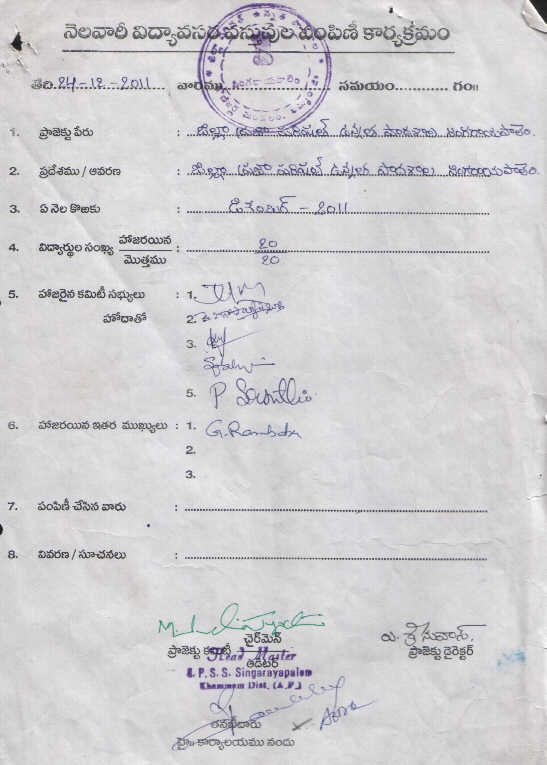 నెలవారీ విద్యావసర వస్తువుల పంపిణీ కార్యక్రమం
తేది 24-12-2011 వారము సమయం గం॥
1. ప్రాజెక్టు పేరు : జిల్లా ప్రజా పరిషత్ ఉన్నత పాఠశాల సింగరాయపాలెం.
2. ప్రదేశము / ఆవరణ : జిల్లా ప్రజా పరిషత్ ఉన్నత పాఠశాల సింగరాయపాలెం.
3. ఏ నెల కొఱకు : డిశెంబర్ - 2011
4. విద్యార్థుల సంఖ్య హాజరయిన / మొత్తము : 20 / 20
5. హాజరైన కమిటీ సభ్యులు : 1.
హోదాతో 2.
3.
5. P
6. హాజరయిన ఇతర ముఖ్యులు : 1. G. Rambabu
2.
3.
7. పంపిణీ చేసిన వారు :
8. వివరణ / సూచనలు :
ప్రాజెక్టు కమిటీ ఛైర్మెన్
యి. శ్రీనివాస్
ప్రాజెక్టు డైరెక్టర్
Head Master
ఆడిటర్
Z. P. S. S. Singarayapalem
Khammam Dist. (A.P.)
తనఖీదారు
హై. కార్యాలయము నందు